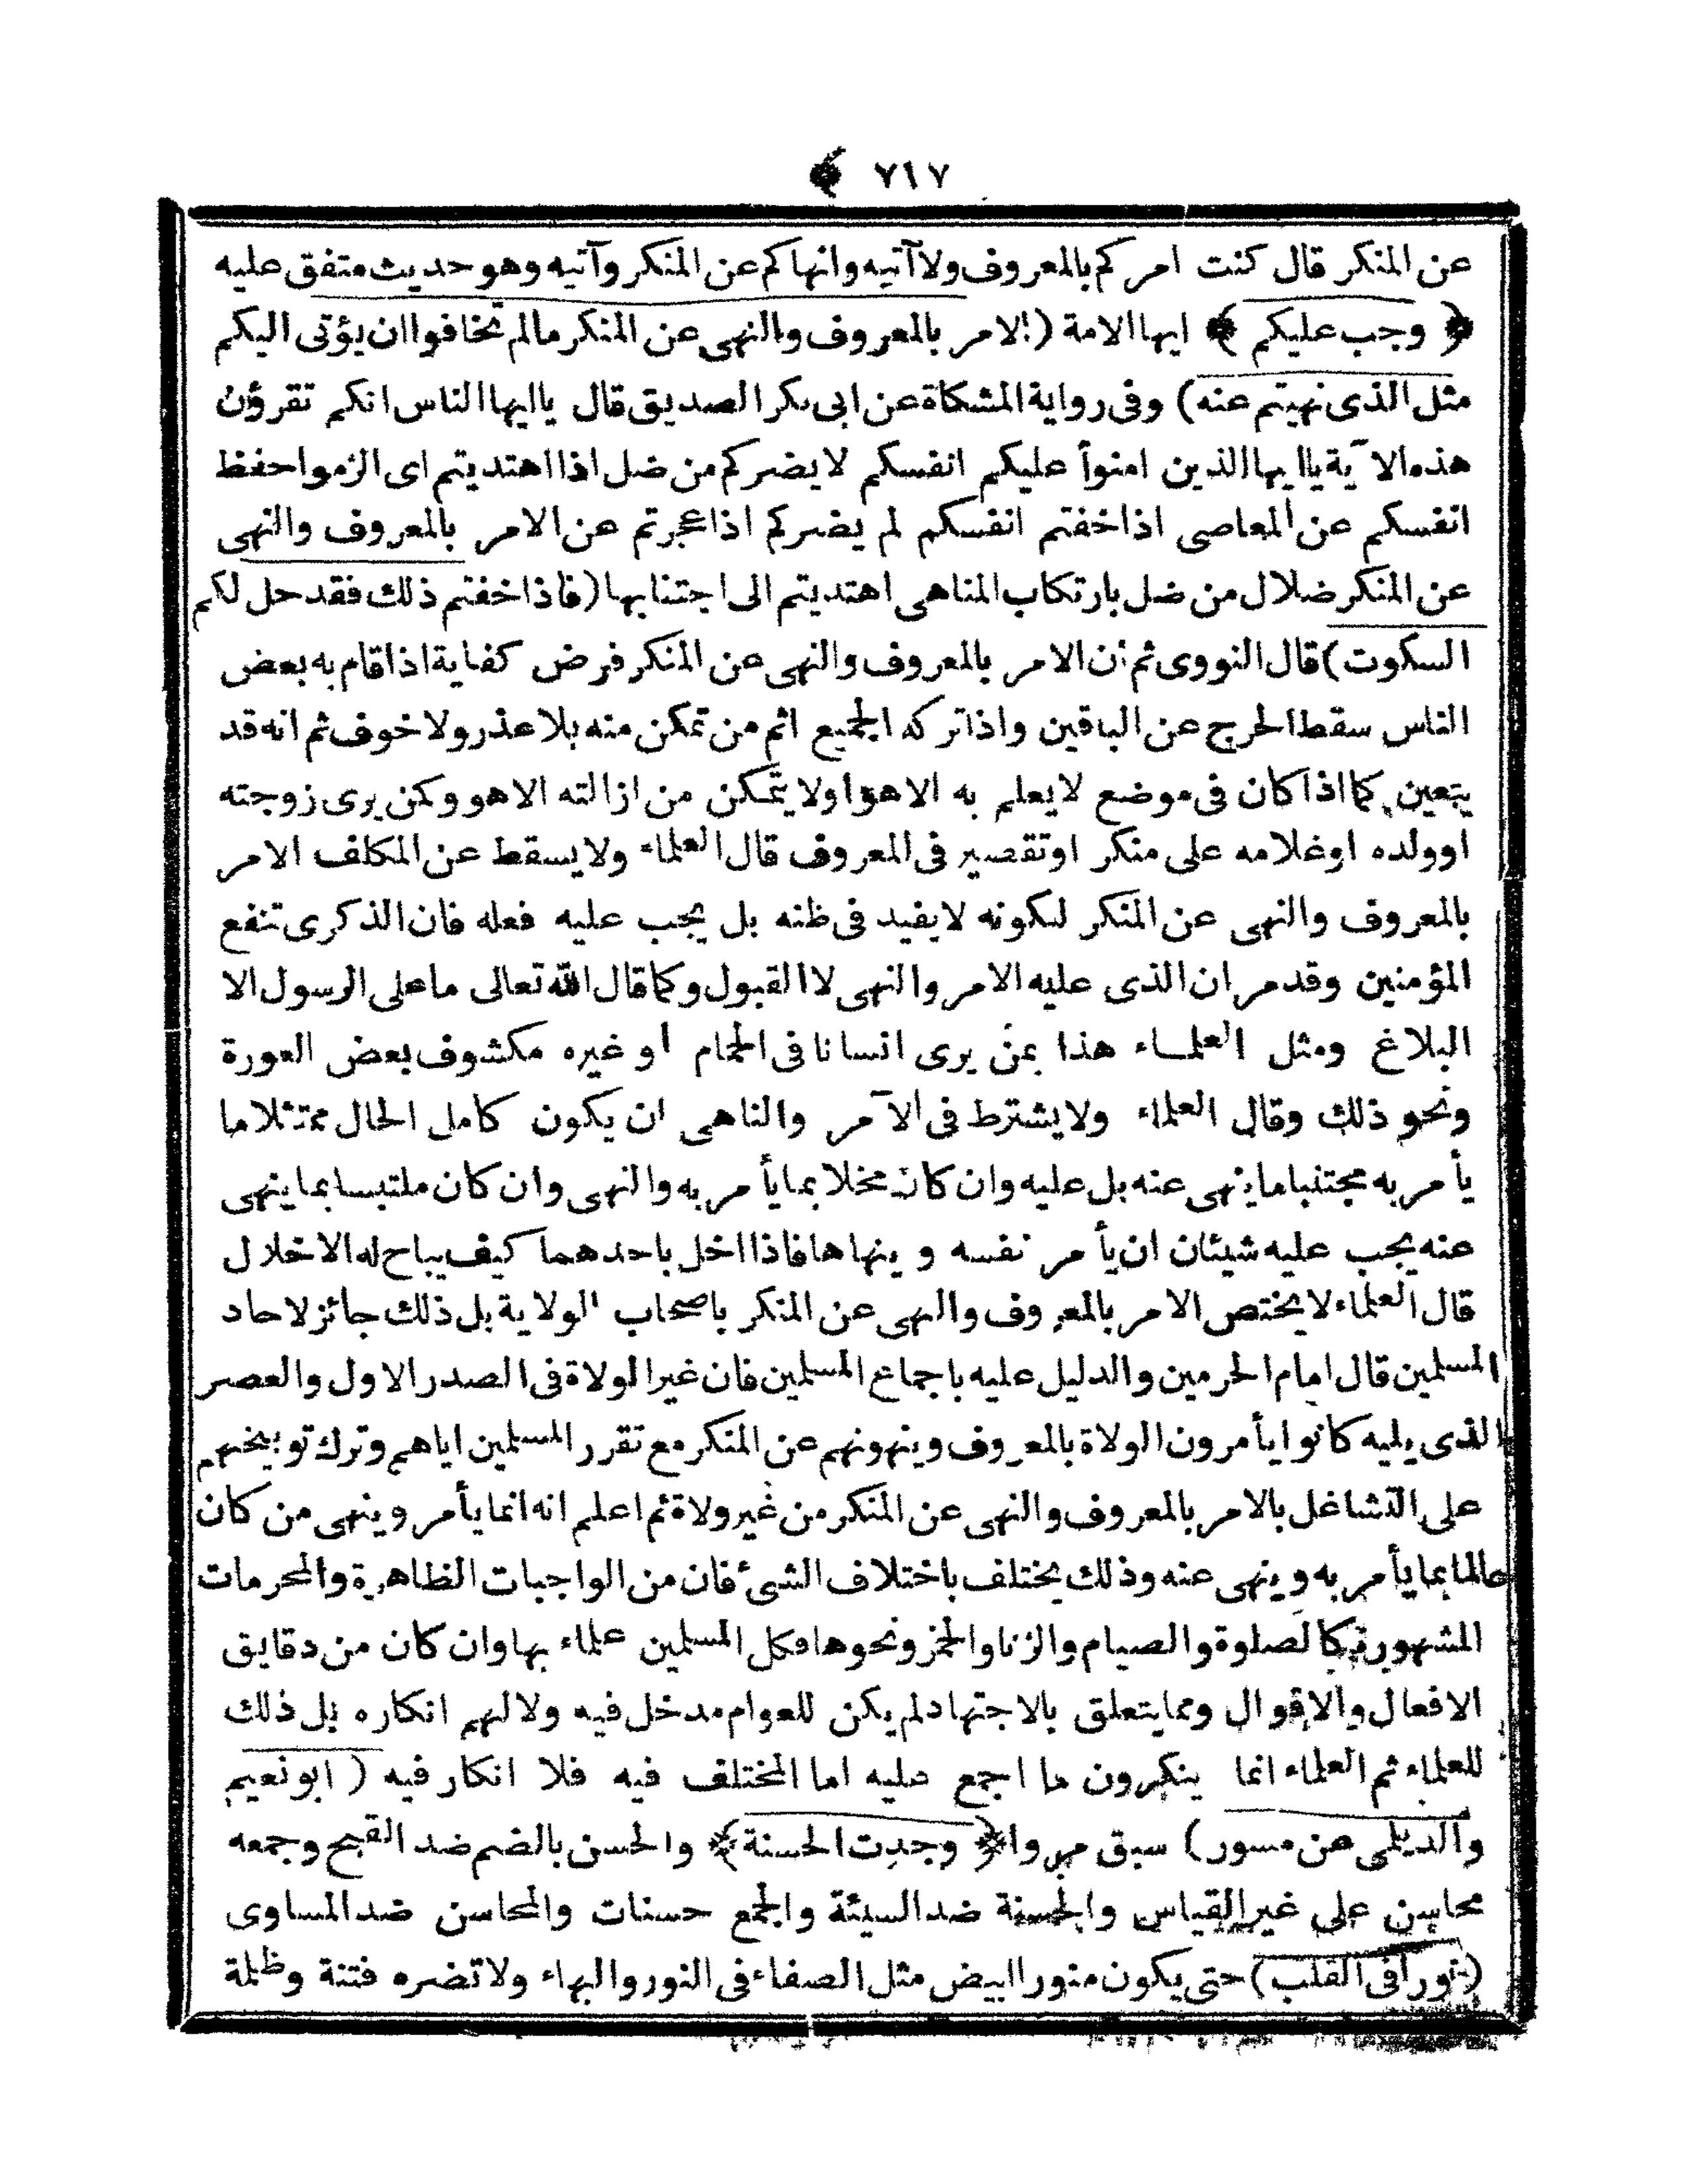 ﴿ ٧٦٧ ﴾
عن المنكر قال كنت امركم بالمعروف ولا آتيه وانهاكم عن المنكر وآتيه وهو حديث متفق عليه
﴿ وجب عليكم ﴾ ايها الامة (الامر بالمعروف والنهى عن المنكر مالم تخافوا ان يؤتى اليكم
مثل الذى نهيتم عنه) وفى رواية المشكاة عن ابى بكر الصديق قال يا ايها الناس انكم تقرؤن
هذه الآية يا ايها الذين امنوا عليكم انفسكم لا يضركم من ضل اذا اهتديتم اى الزموا حفظ
انفسكم عن المعاصى اذا خفتم انفسكم لم يضركم اذا عجزتم عن الامر بالمعروف والنهى
عن المنكر ضلال من ضل بارتكاب المناهى اهتديتم الى اجتنابها (فاذا خفتم ذلك فقد حل لكم
السكوت) قال النووى ثم ان الامر بالمعروف والنهى عن المنكر فرض كفاية اذا قام به بعض
الناس سقط الحرج عن الباقين واذا تركه الجميع اثم من تمكن منه بلا عذر ولا خوف ثم انه قد
يتعين كما اذا كان فى موضع لا يعلم به الا هو اولا يتمكن من ازالته الا هو وكمن يرى زوجته
او ولده او غلامه على منكر او تقصير فى المعروف قال العلماء ولا يسقط عن المكلف الامر
بالمعروف والنهى عن المنكر لكونه لا يفيد فى ظنه بل يجب عليه فعله فان الذكرى تنفع
المؤمنين وقد مر ان الذى عليه الامر والنهى لا القبول وكما قال الله تعالى ما على الرسول الا
البلاغ ومثل العلماء هذا بمن يرى انسانا فى الحمام او غيره مكشوف بعض العورة
ونحو ذلك وقال العلماء ولا يشترط فى الآمر والناهى ان يكون كامل الحال ممتثلا ما
يأمر به مجتنبا ما ينهى عنه بل عليه وان كان مخلا بما يأمر به والنهى وان كان ملتبسا بما ينهى
عنه يجب عليه شيئان ان يأمر نفسه و ينهاها فاذا اخل باحدهما كيف يباح له الاخلال
قال العلماء لا يختص الامر بالمعروف والنهى عن المنكر باصحاب الولاية بل ذلك جائز لاحاد
المسلمين قال امام الحرمين والدليل عليه باجماع المسلمين فان غير الولاة فى الصدر الاول والعصر
الذى يليه كانوا يأمرون الولاة بالمعروف وينهونهم عن المنكر مع تقرر المسلمين اياهم وترك توبيخهم
على التشاغل بالامر بالمعروف والنهى عن المنكر من غير ولاة ثم اعلم انه انما يأمر وينهى من كان
عالما بما يأمر به وينهى عنه وذلك يختلف باختلاف الشئ فان من الواجبات الظاهرة والمحرمات
المشهورة كالصلوة والصيام والزنا والخمر ونحوها فكل المسلمين علماء بها وان كان من دقايق
الافعال والاقوال ومما يتعلق بالاجتهاد لم يكن للعوام مدخل فيه ولا لهم انكاره بل ذلك
للعلماء ثم العلماء انما ينكرون ما اجمع عليه اما المختلف فيه فلا انكار فيه (ابو نعيم
والديلمى عن مسور) سبق مروا ﴿ وجدت الحسنة ﴾ والحسن بالضم ضد القبح وجمعه
محاسن على غير القياس والحسنة ضد السيئة والجمع حسنات والمحاسن ضد المساوى
(نورا فى القلب) حتى يكون منورا ابيض مثل الصفاء فى النور والبهاء ولا تضره فتنة وظلمة